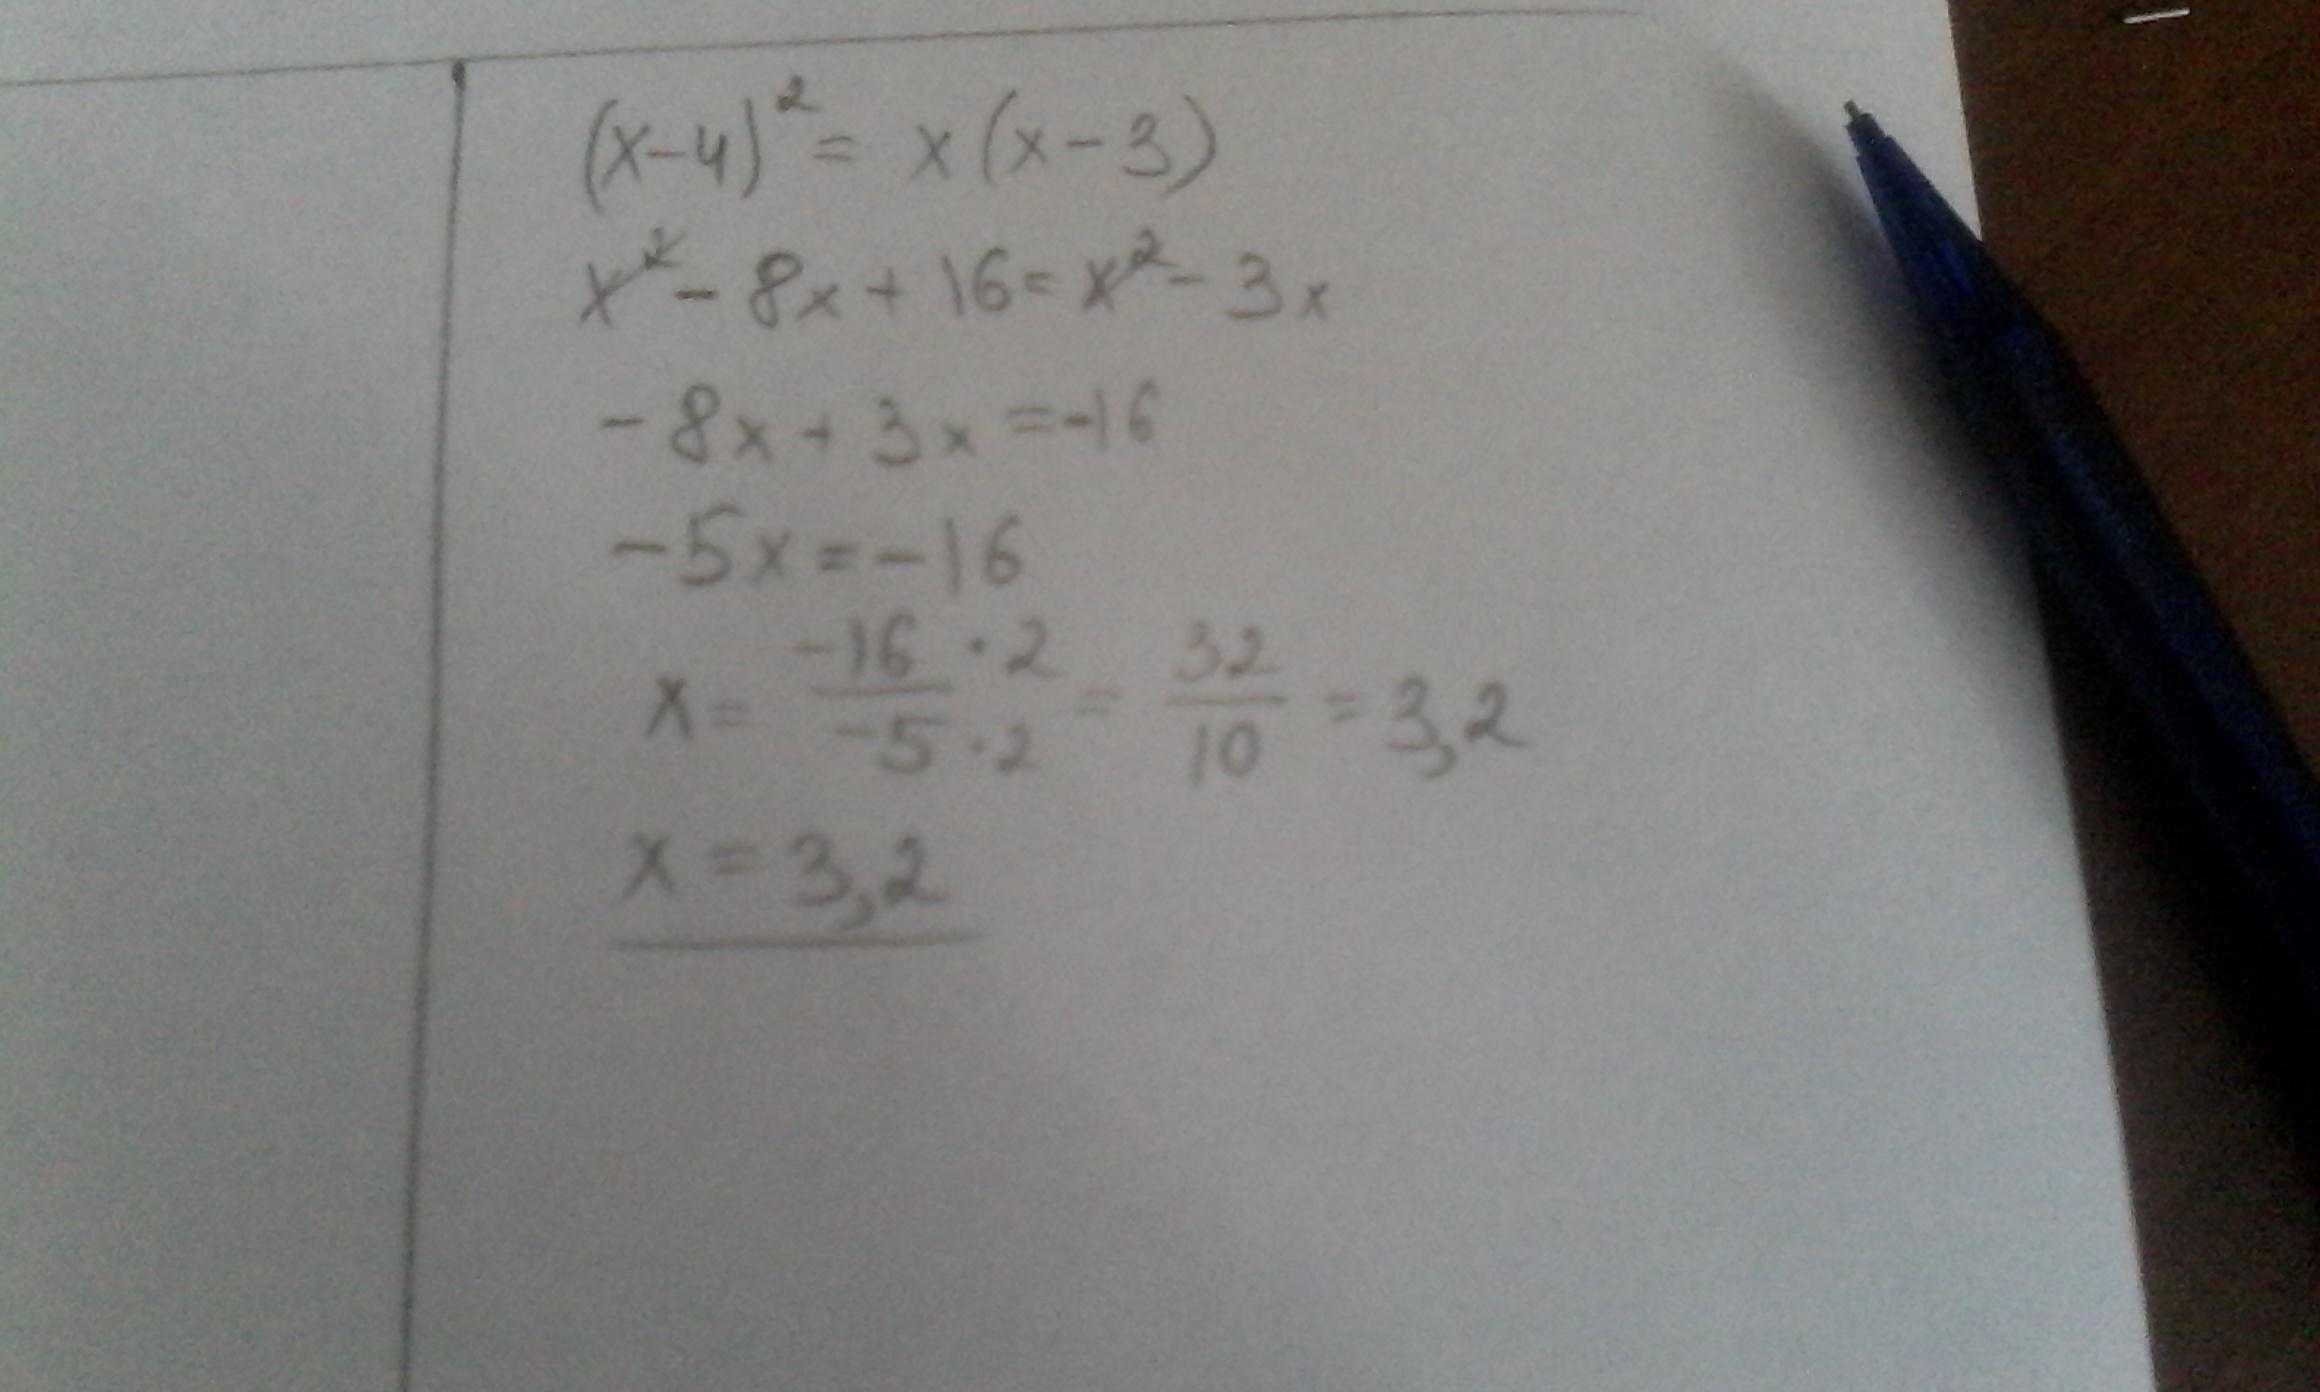 (x-4)² = x(x-3)
x² - 8x + 16 = x² - 3x
-8x + 3x = -16
-5x = -16
x = -16 · 2 / -5 · 2 = 32/10 = 3,2
x = 3,2